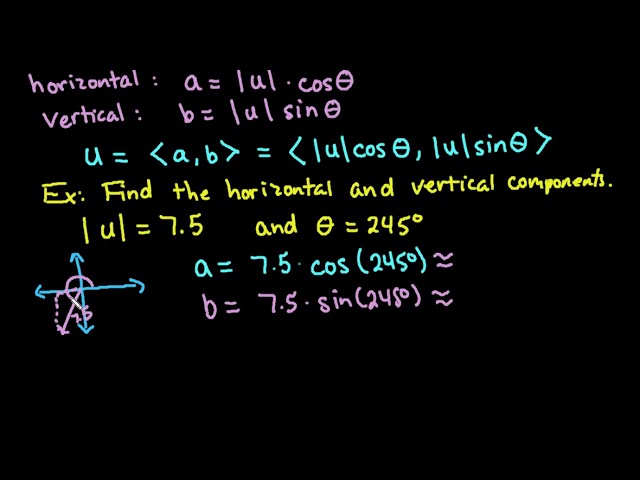 horizontal: a = |u| · cosθ
vertical: b = |u| sinθ
u = <a,b> = <|u|cosθ, |u|sinθ>
Ex: Find the horizontal and vertical components.
|u| = 7.5 and θ = 245°
a = 7.5 · cos(245°) ≈
b = 7.5 · sin(245°) ≈
7.5